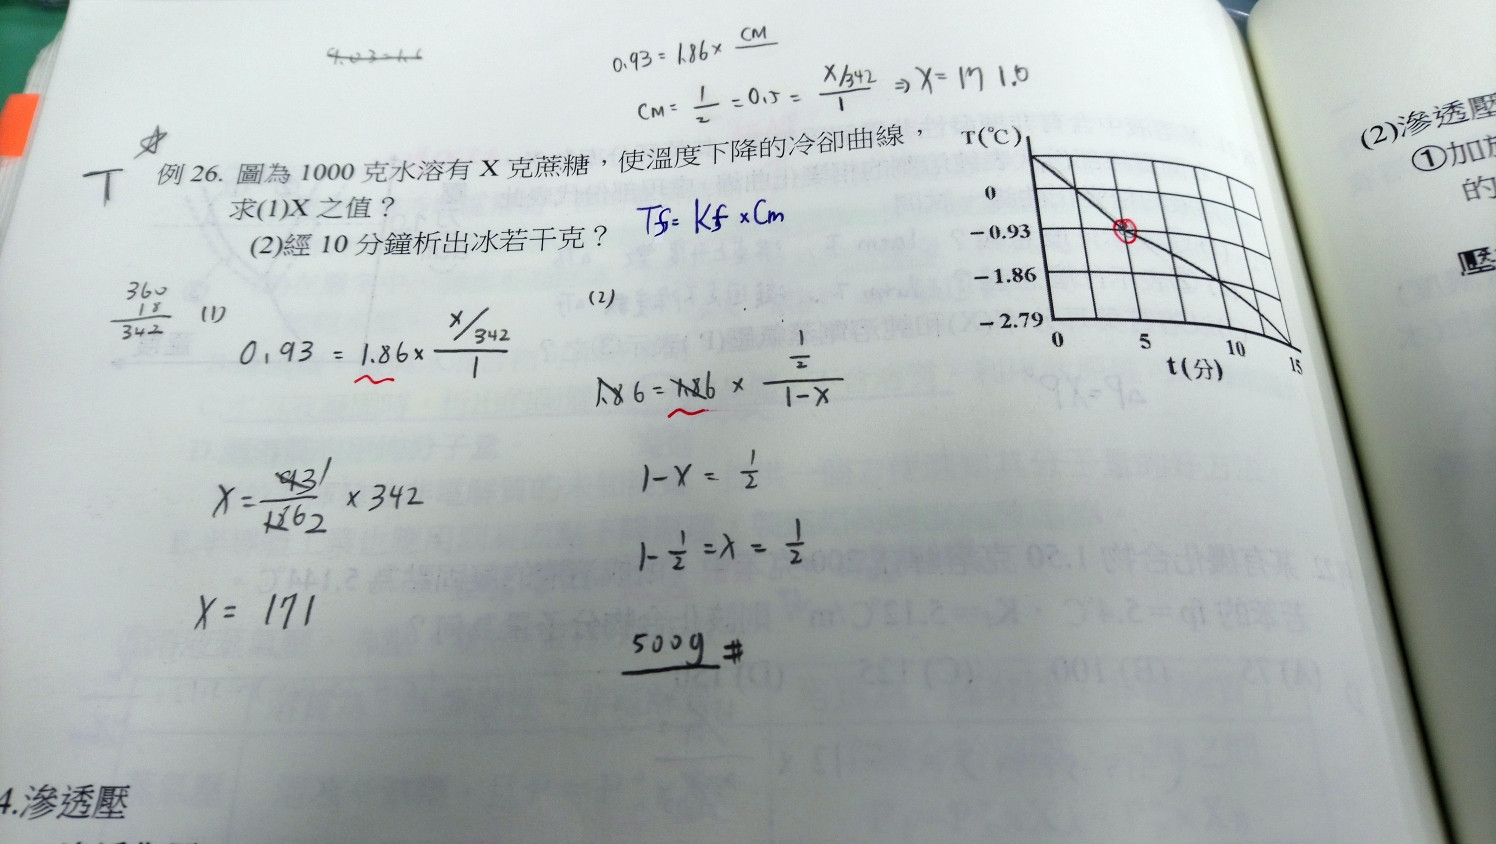 0.93 = 1.86 × CM
CM = 1/2 = 0.5 = (X/342)/1 ⇒ X = 171.0
T
例 26. 圖為 1000 克水溶有 X 克蔗糖，使溫度下降的冷卻曲線，
求(1)X 之值？
(2)經 10 分鐘析出冰若干克？
Tf = Kf × Cm
T(℃)
0
－0.93
－1.86
－2.79
0 5 10 15
t(分)
360
18
342
(1)
0.93 = 1.86 × (X/342)/1
X = 93/186 1/2 × 342
X = 171
(2)
1.86 = 1.86 × (1/2)/(1-X)
1-X = 1/2
1 - 1/2 = X = 1/2
500g #
4.滲透壓
(2)滲透壓
①加
的
壓